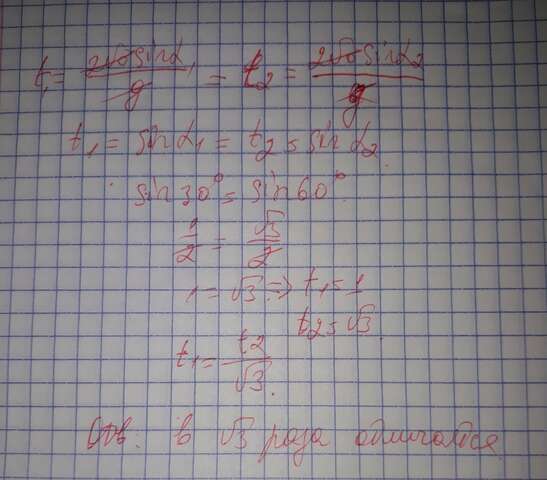 t₁ = 2v₀sinα₁/g = t₂ = 2v₀sinα₂/g
t₁ = sinα₁ = t₂ = sinα₂
sin30° = sin60°
1/2 = √3/2
1 = √3 => t₁ = 1
t₂ = √3
t₁ = t₂/√3.
Отв: в √3 раза отличаются